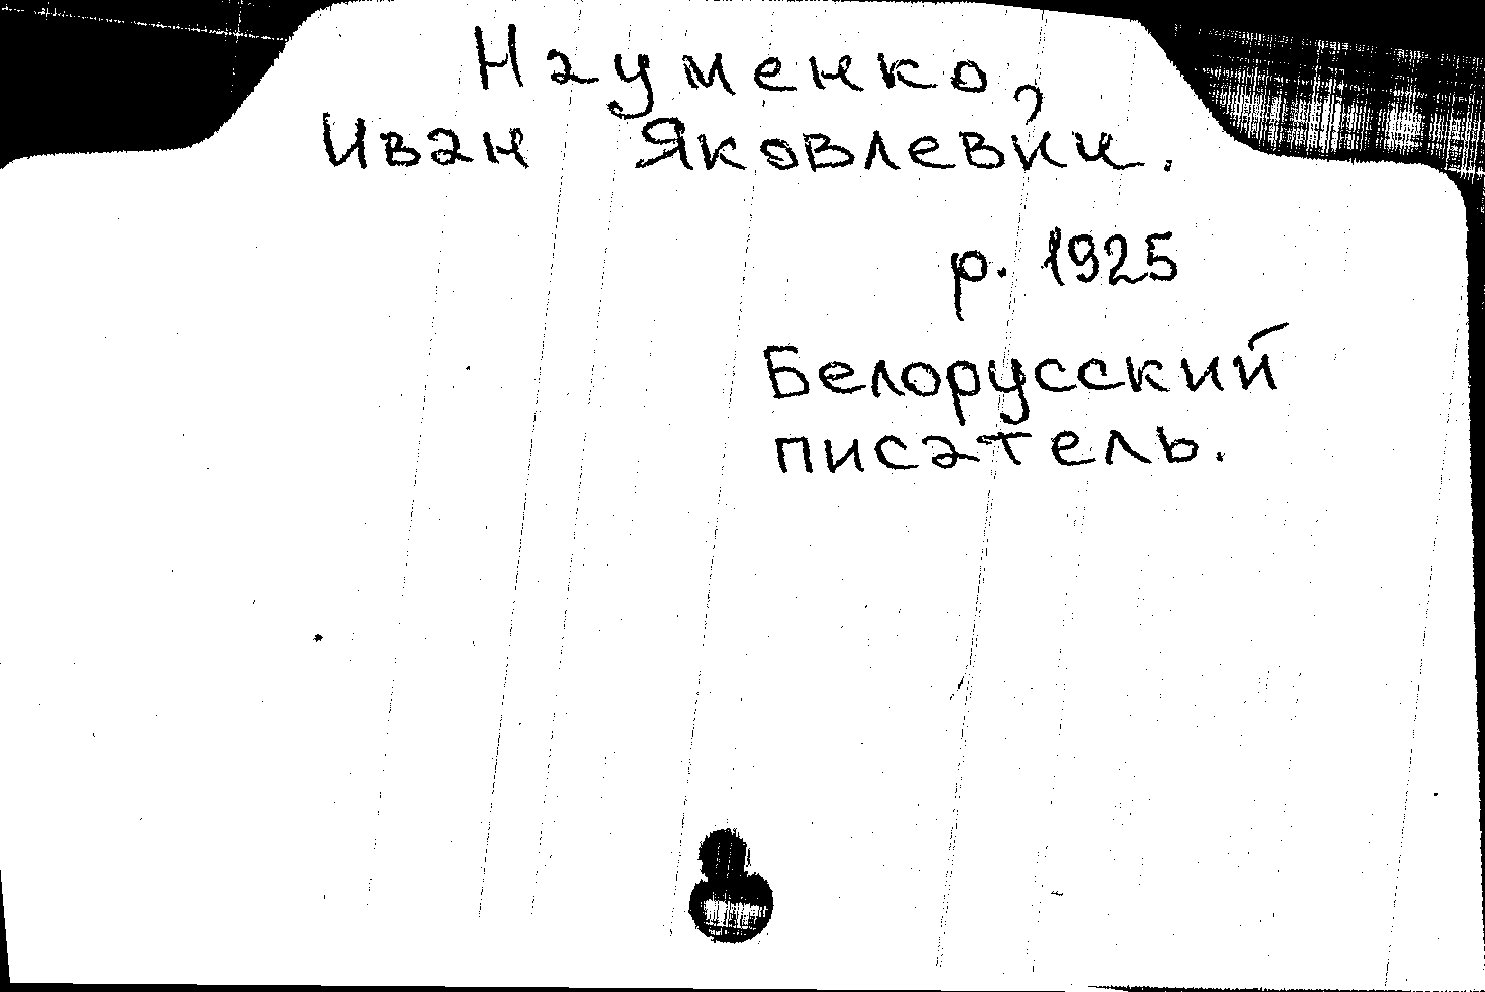 Науменко,
Иван Яковлевич.
р. 1925
Белорусский
писатель.